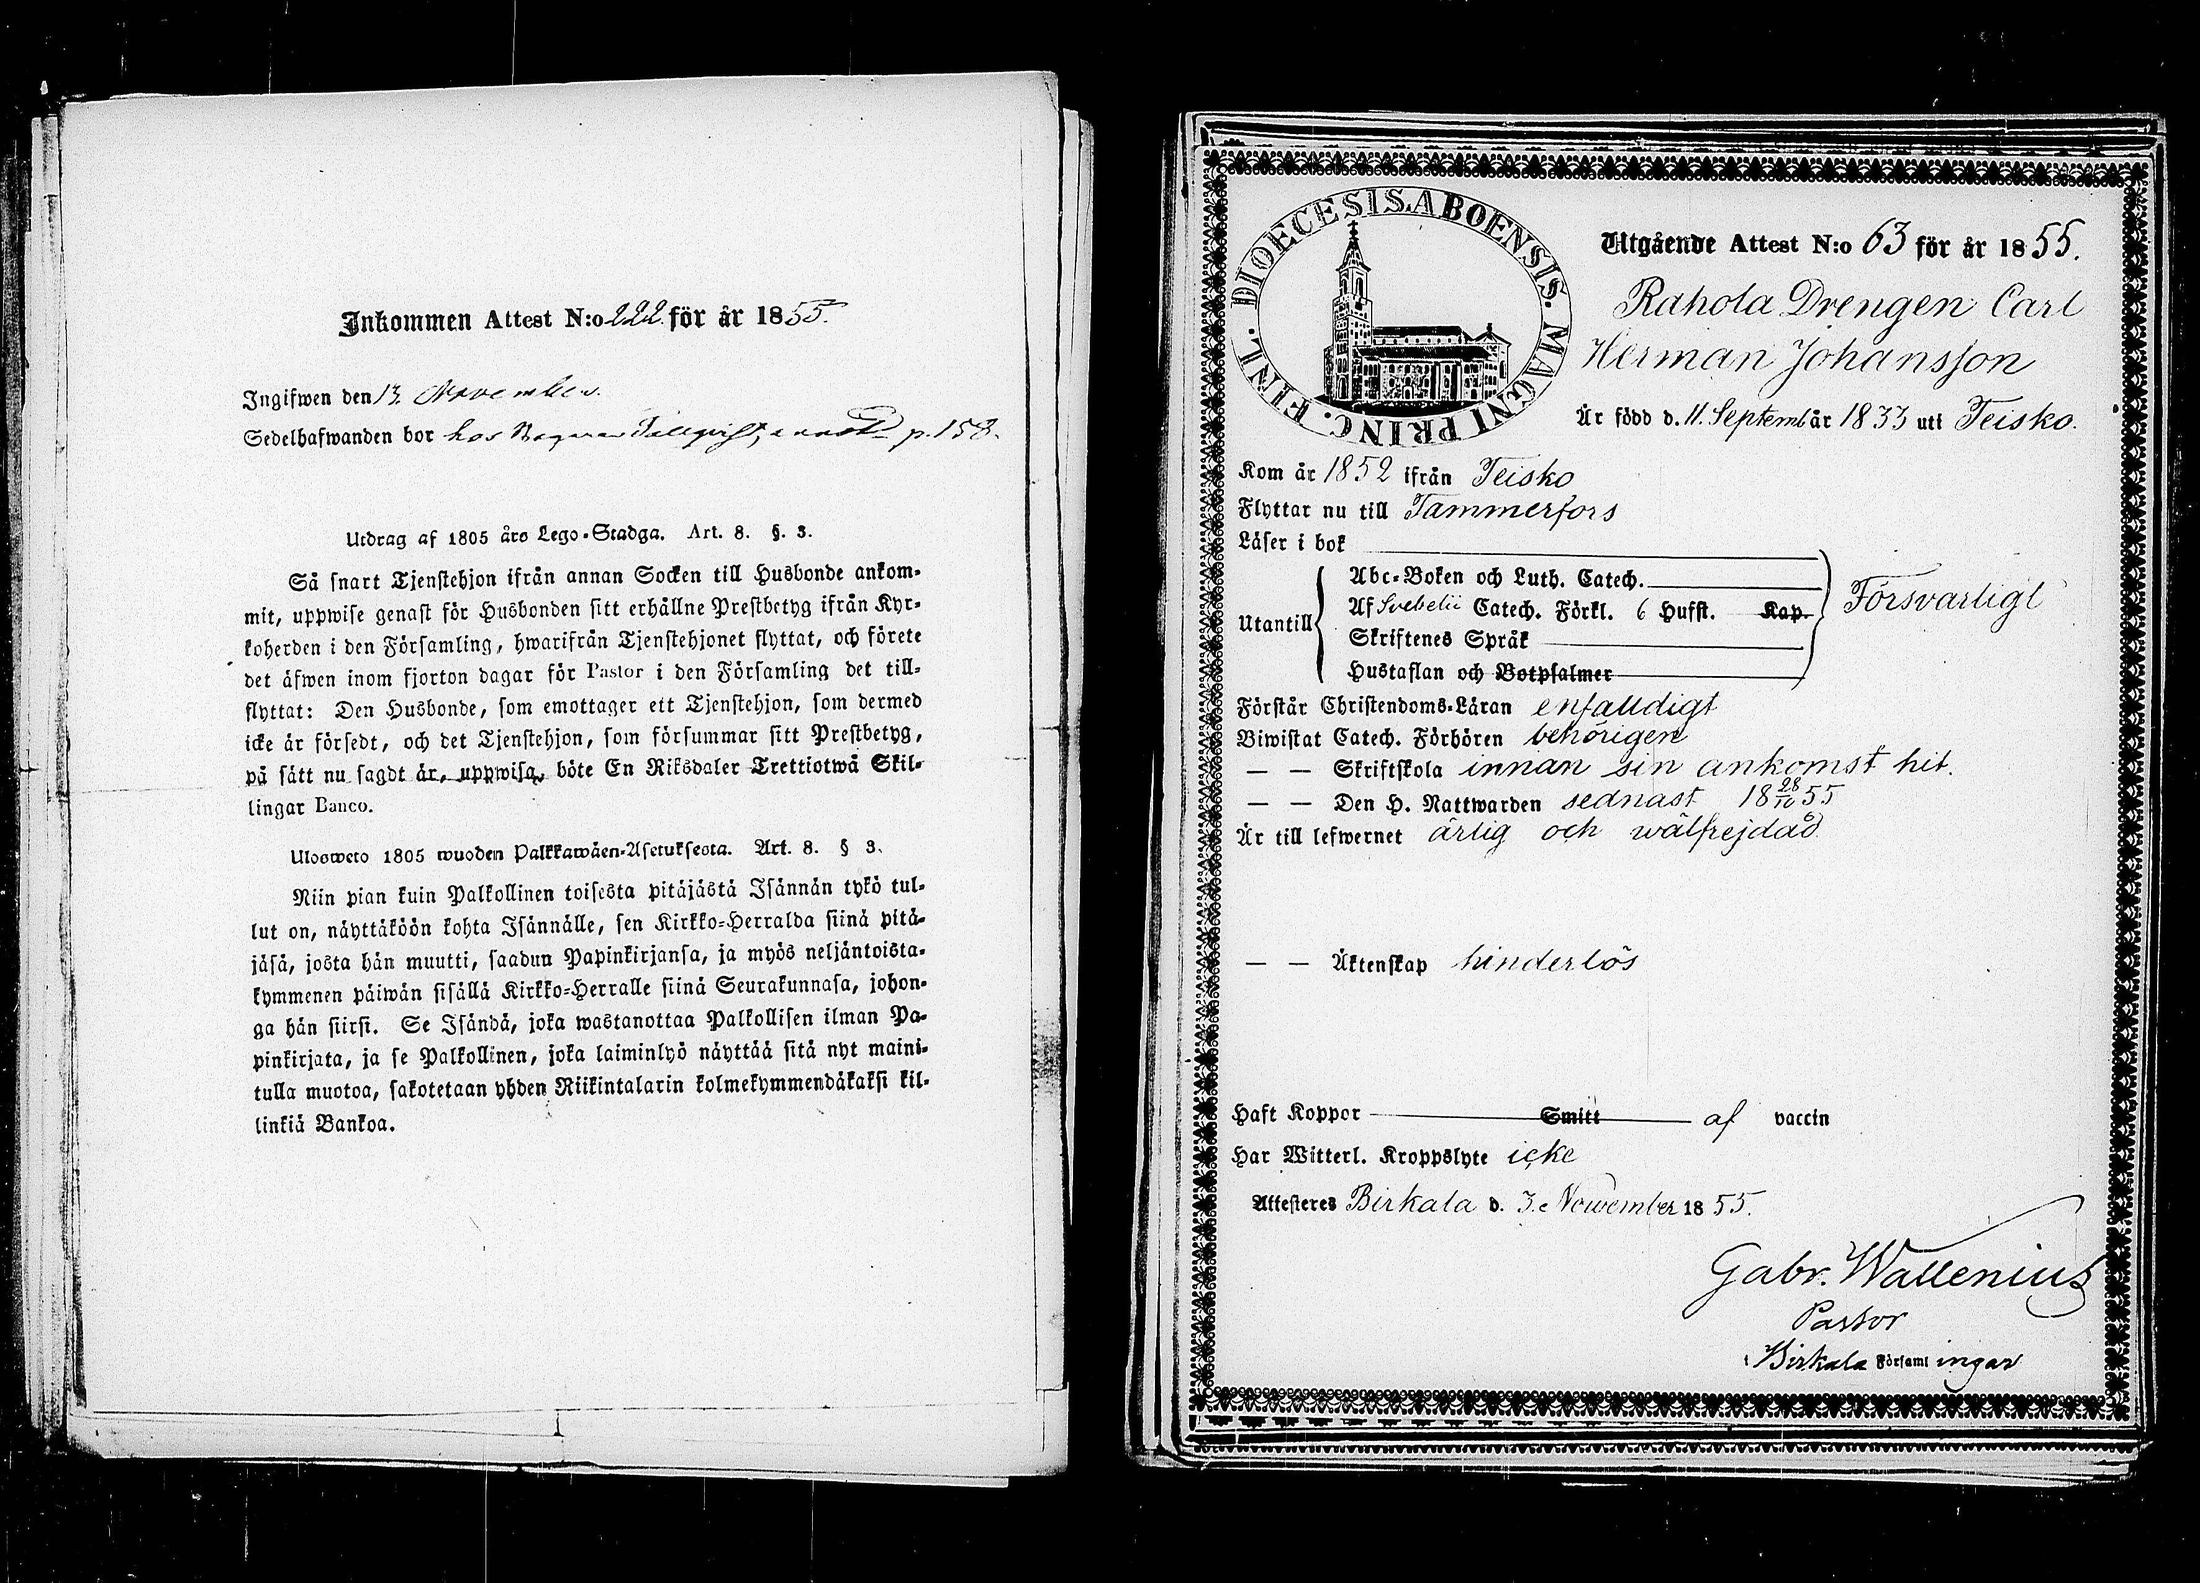 Inkommen Attest N:o 222 för år 1855.
Ingifwen den 13. November.
Sedelhafwanden bor hos p. 158.
Utdrag af 1805 års Lego-Stadga. Art. 8. §. 3.
Så snart Tjenstehjon ifrån annan Socken till Husbonde ankom-
mit, uppwise genast för Husbonden sitt erhållne Prestbetyg ifrån Kyr-
koherden i den Församling, hwarifrån Tjenstehjonet flyttat, och förete
det äfwen inom fjorton dagar för Pastor i den Församling det till-
flyttat: Den Husbonde, som emottager ett Tjenstehjon, som dermed
icke är försedt, och det Tjenstehjon, som försummar sitt Prestbetyg,
på sätt nu sagdt är, uppwisa, böte En Riksdaler Trettiotwå Skil-
lingar Banco.
Ulosweto 1805 wuoden Palkkawäen-Asetuksesta. Art. 8. § 3.
Niin pian kuin Palkollinen toisesta pitäjästä Isännän tykö tul-
lut on, näyttäköön kohta Isännälle, sen Kirkko-Herralda siinä pitä-
jäsä, josta hän muutti, saadun Papinkirjansa, ja myös neljäntoista-
kymmenen päiwän sisällä Kirkko-Herralle siinä Seurakunnasa, johon-
ga hän siirsi. Se Isändä, joka wastanottaa Palkollisen ilman Pa-
pinkirjata, ja se Palkollinen, joka laiminlyö näyttää sitä nyt maini-
tulla muotoa, sakotetaan yhden Riikintalarin kolmekymmendäkaksi kil-
linkiä Bankoa.
DIOECESIS. ABOENSIS. MAGNI PRINC. FINL.
Utgående Attest N:o 63 för år 1855.
Rahola Drengen Carl
Herman Johansson
Är född d. 11. Septemb år 1833 uti Teisko.
Kom år 1852 ifrån Teisko
Flyttar nu till Tammerfors
Läser i bok
Utantill
Abc-Boken och Luth. Catech.
Af Svebelii Catech. Förkl. 6 Hufst. Kap.
Skriftenes Språk
Hustaflan och Botpsalmer
Försvarligt
Förstår Christendoms-Läran enfalldigt
Biwistat Catech. Förhören behörigen
— — Skriftskola innan sin ankomst hit.
— — Den H. Nattwarden sednast 18 28/10 55
Är till lefwernet ärlig och wälfrejdad
— — Äktenskap hinderlös
Haft Koppor Smitt af vaccin
Har Witterl. Kroppslyte icke
Attesteres Birkala d. 3. Nowember 1855.
Gabr. Wallenius
Pastor
i Birkala Församl ingar